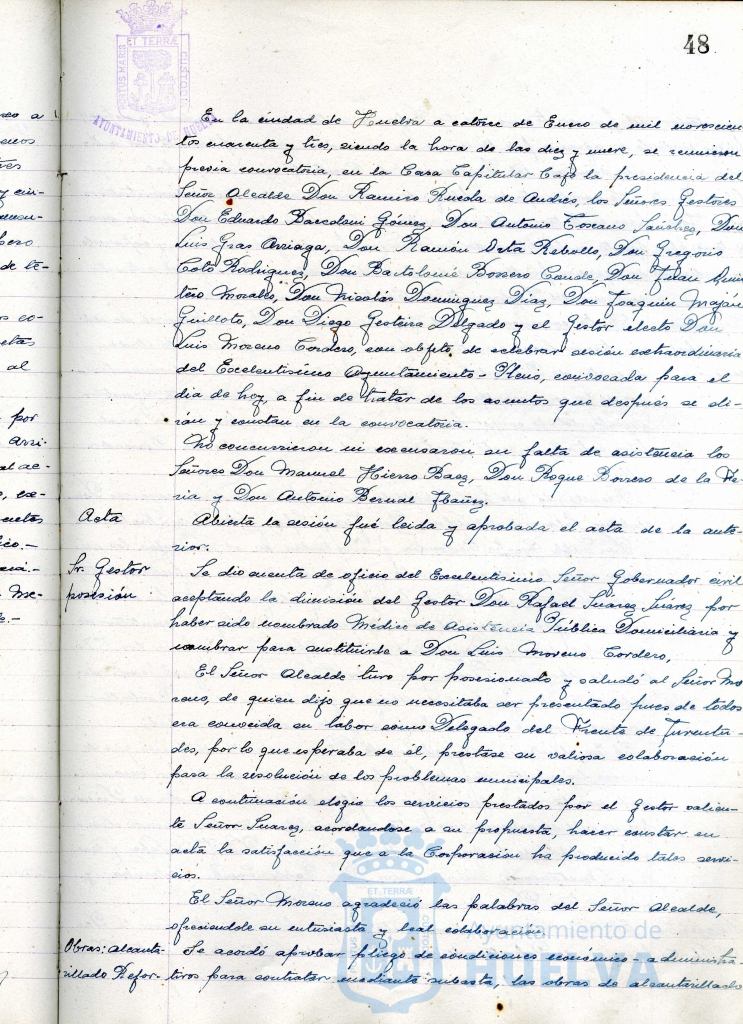 48
PORTUS MARIS ET TERRAE CUSTODIA
AYUNTAMIENTO DE HUELVA
En la ciudad de Huelva a catorce de Enero de mil novescien-
tos cuarenta y tres, siendo la hora de las diez y nueve, se reunieron
previa convocatoria, en la Casa Capitular bajo la presidencia del
Señor Alcalde Don Ramiro de los Señores Gestores
Don Eduardo Gómez, Don Antonio Toscano Sánchez, Don
Luis Gras Arriaga, Don Ramón Orta Rebollo, Don Gregorio
Coto Rodriguez, Don Bartolomé Borrero Conde, Don Juan Quin
tero Morales, Don Nicolás Dominguez Diaz, Don Joaquin
Guilloto, Don Diego Delgado y el Gestor electo Don
Luis Moreno Cordero, con objeto de celebrar sesión extraordinaria
del Excelentisimo Ayuntamiento-Pleno, convocada para el
dia de hoy, a fin de tratar de los asuntos que después se di-
rán y constan en la convocatoria.
No concurrieron ni excusaron su falta de asistencia los
Señores Don Manuel Hierro Baez, Don Roque Borrero de la Fe-
ria y Don Antonio Bernal Ibañez.
Acta
Abierta la sesión fué leida y aprobada el acta de la ante-
rior.
Sr. Gestor
posesión
Se dio cuenta de oficio del Excelentisimo Señor Gobernador civil
aceptando la dimisión del Gestor Don Rafael Suárez Suárez por
haber sido nombrado Médico de Asistencia Pública Domiciliaria y
nombrar para sustituirle a Don Luis Moreno Cordero,
El Señor Alcalde tuvo por posesionado y saludó al Señor Mo
reno, de quien dijo que no necesitaba ser presentado pues de todos
era conocida su labor como Delegado del Frente de Juventu-
des, por lo que esperaba de él, prestase su valiosa colaboración
para la resolución de los problemas municipales.
A continuación elogia los servicios prestados por el Gestor
Señor Suarez, acordandose a su propuesta, hacer constar en
acta la satisfacción que a la Corporación ha producido tales servi-
cios.
El Señor Moreno agradeció las palabras del Señor Alcalde,
ofreciendole su entusiasta y leal colaboración.
Obras: alcanta-
rillado Refor-
Se acordó aprobar pliego de condiciones económico-administra-
tivas para contratar mediante subasta, las obras de alcantarillado
Ayuntamiento de
HUELVA